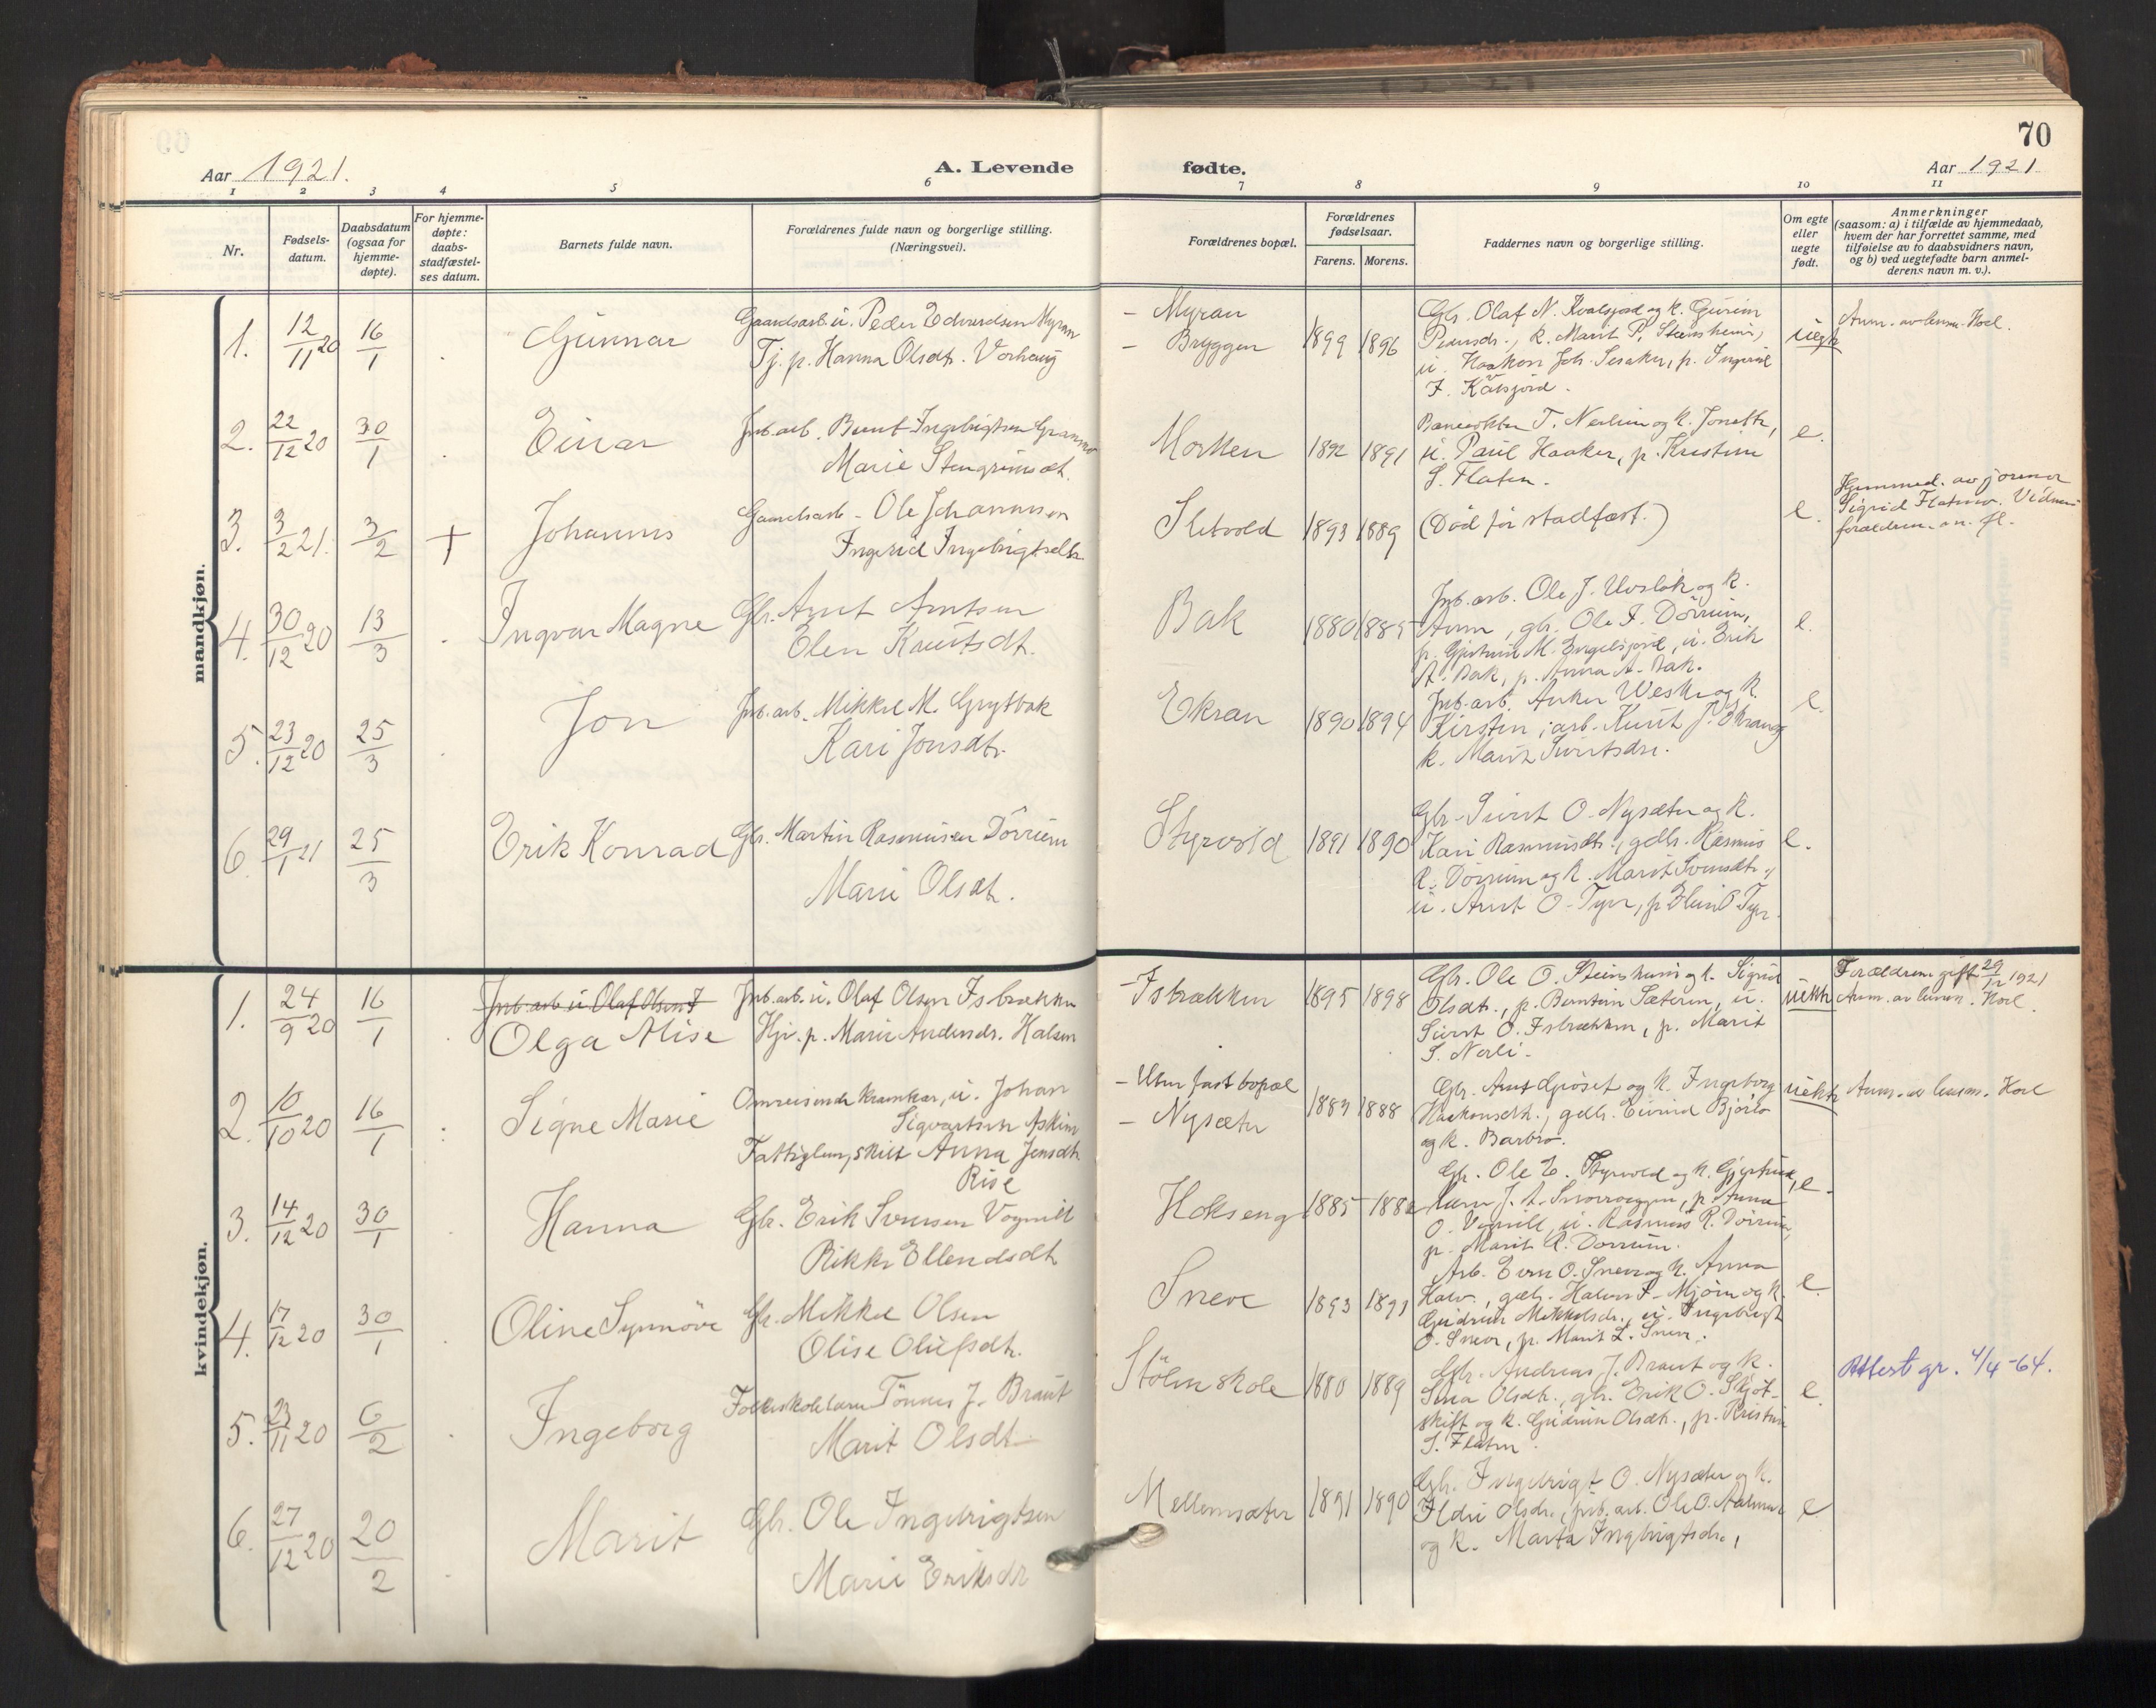 70
Aar 1921.
A. Levende
fødte.
Aar 1921
1 2 3 4 5 6 7 8 9 10 11
Nr.
Fødsels-
datum.
Daabsdatum
(ogsaa for
hjemme-
døpte).
For hjemme-
døpte:
daabs-
stadfæstel-
ses datum.
Barnets fulde navn.
Forældrenes fulde navn og borgerlige stilling.
(Næringsvei).
Forældrenes bopæl.
Forældrenes
fødselsaar.
Farens. Morens.
Faddernes navn og borgerlige stilling.
Om egte
eller
uegte
født.
Anmerkninger
(saasom: a) i tilfælde av hjemmedaab,
hvem der har forrettet samme, med
tilføielse av to daabsvidners navn,
og b) ved uegtefødte barn anmel-
derens navn m. v.).
mandkjøn.
1. 12/11 20 16/1 Gunnar
Gaardsarb. u. Peder Edvardsen Myran
Tj. p. Hanna Olsdt. Vorhaug
- Myran
- Bryggen
1899 1896
Gbr. Olaf N. Kvalsjord og k. Gurine
Pedersdr., k. Marit P. Stensheim,
u. Haakon Joh. Sesaker, p. Ingerid
uegte
Anm. av lensm. Hoel.
2. 22/12 20 30/1 Einar
Jrb.arb. Bernt Ingebrigtsen Granmo
Marie Stengrimsdt.
Morken 1892 1891
T. Nerlien og k. Jonette,
u. Paul Haaker, p. Kristine
S. Flaten.
e.
3. 3/2 21. 3/2 + Johannes
Gaardsarb. Ole Johannesen
Ingerid Ingebrigtsdtr.
Sletvold 1893 1889
(Død før stadfæst.)
e.
Hjemmed. av jormor
Sigrid Flatmo. Vidner
forældrene an. fl.
4. 30/12 20 13/3 Ingvar Magne
Gbr. Arnt Arntsen
Elen Knutsdt.
Bak 1880 1885
Jrb.arb. Ole J. Uvsløk og k.
Anne, gbr. Ole I. Dörrum,
p. Gjertrud M. Engelsjord, u. Erik
A. Bak, p. Anna A. Bak.
e.
5. 23/12 20 25/3 Jon
Jrb.arb. Mikkel M. Grytbak
Kari Jonsdtr.
Ekran 1890 1894
Jrb.arb. Anker Weske og k.
Kirsten, arb. Knut J. Ekran og
k. Marit Sivertsdr.
e.
6. 29/1 21 25/3 Erik Konrad
Gbr. Martin Rasmussen Dörrum
Marie Olsdt.
Styrvold 1891 1890
Gbr. Sivert O. Nysæter og k.
Kari Rasmusdt., gdbr. Rasmus
R. Dörrum og k. Marit Svensdtr.,
u. Arnt O. Tyrr, p. Elen O. Tyrr.
e.
kvindekjøn.
1. 24/9 20 16/1
Jrb.arb. u. Olaf Olsen I
Olga Alise
Jrb.arb. u. Olaf Olsen Isbrækken
Hjv. p. Marie Andersdr. Halsen
Isbrækken 1895 1898
Gbr. Ole O. Steinsheim og k. Sigrid
Olsdt., p. Berntine Sæteren, u.
Sivert O. Isbrækken, p. Marit
S. Nerli.
uekte
Forældrene gift 29/12 1921
Anm. av lensm. Hoel.
2. 10/10 20 16/1 Signe Marie
Omreisende kramkar, u. Johan
Sigvartsen Askim
Fattiglem, skilt Anna Jensdt.
Rise
- Uten fast bopæl
- Nysæter
1883 1888
Gbr. Arnt Gjöset og k. Ingeborg
Haakonsdt., gdbr. Eivind Bjørlo
og k. Barbro.
uekte
Anm. av lensm. Hoel
3. 14/12 20 30/1 Hanna
Gbr. Erik Svensen Vognill
Rikke Ellendsdt.
Hokseng 1885 1882
Gbr. Ole E. Styrvold og k. Gjertrud,
O. Vognill, u. Rasmus R. Dörrum,
p. Marit R. Dörrum.
e.
4. 17/12 20 30/1 Oline Synnöve
Gbr. Mikkel Olsen
Olise Olufsdt.
Sneve 1893 1893
Arb. Even O. Sneve og k. Anna
Halv., gdbr. Halvor F. Mjöen og k.
Gudrun Mikkelsdr., u. Ingebrigt
O. Sneve, p. Marit L. Sneve.
e.
5. 23/11 20 6/2 Ingeborg
Folkeskolelærer Tönnes J. Braut
Marit Olsdt.
Stölen skole 1880 1889
Gbr. Andreas J. Braut og k.
Sina Olsdt., gbr. Erik O. Skjöt-
skift og k. Gudrun Olsdt., p. Kristine
S. Flaten.
e.
Attest gr. 4/4-64.
6. 27/12 20 20/2 Marit
Gbr. Ole Ingebrigtsen
Marie Eriksdr.
Mellemsæter 1891 1890
Gbr. Ingebrigt O. Nysæter og k.
Ildri Olsdr., jrb.arb. Ole O. Aalmo
og k. Marta Ingebrigtsdr.,
e